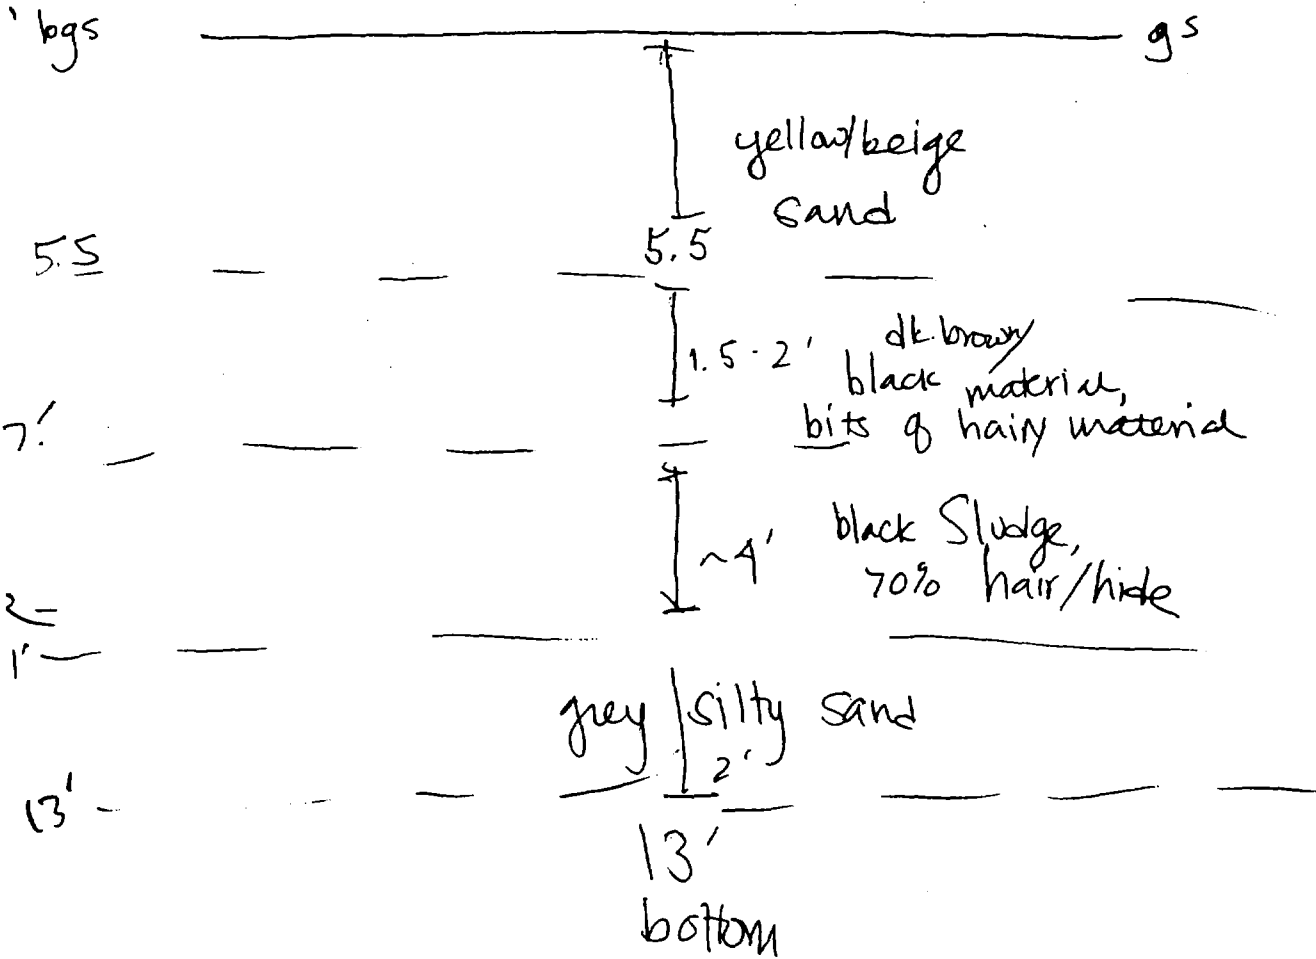 ' bgs gs
yellow/beige
sand
5.5 5.5
1.5-2' dk. brown/
black material,
7' bits of hairy material
~4' black Sludge,
70% hair/hide
1'
grey silty sand
2'
13'
13'
bottom